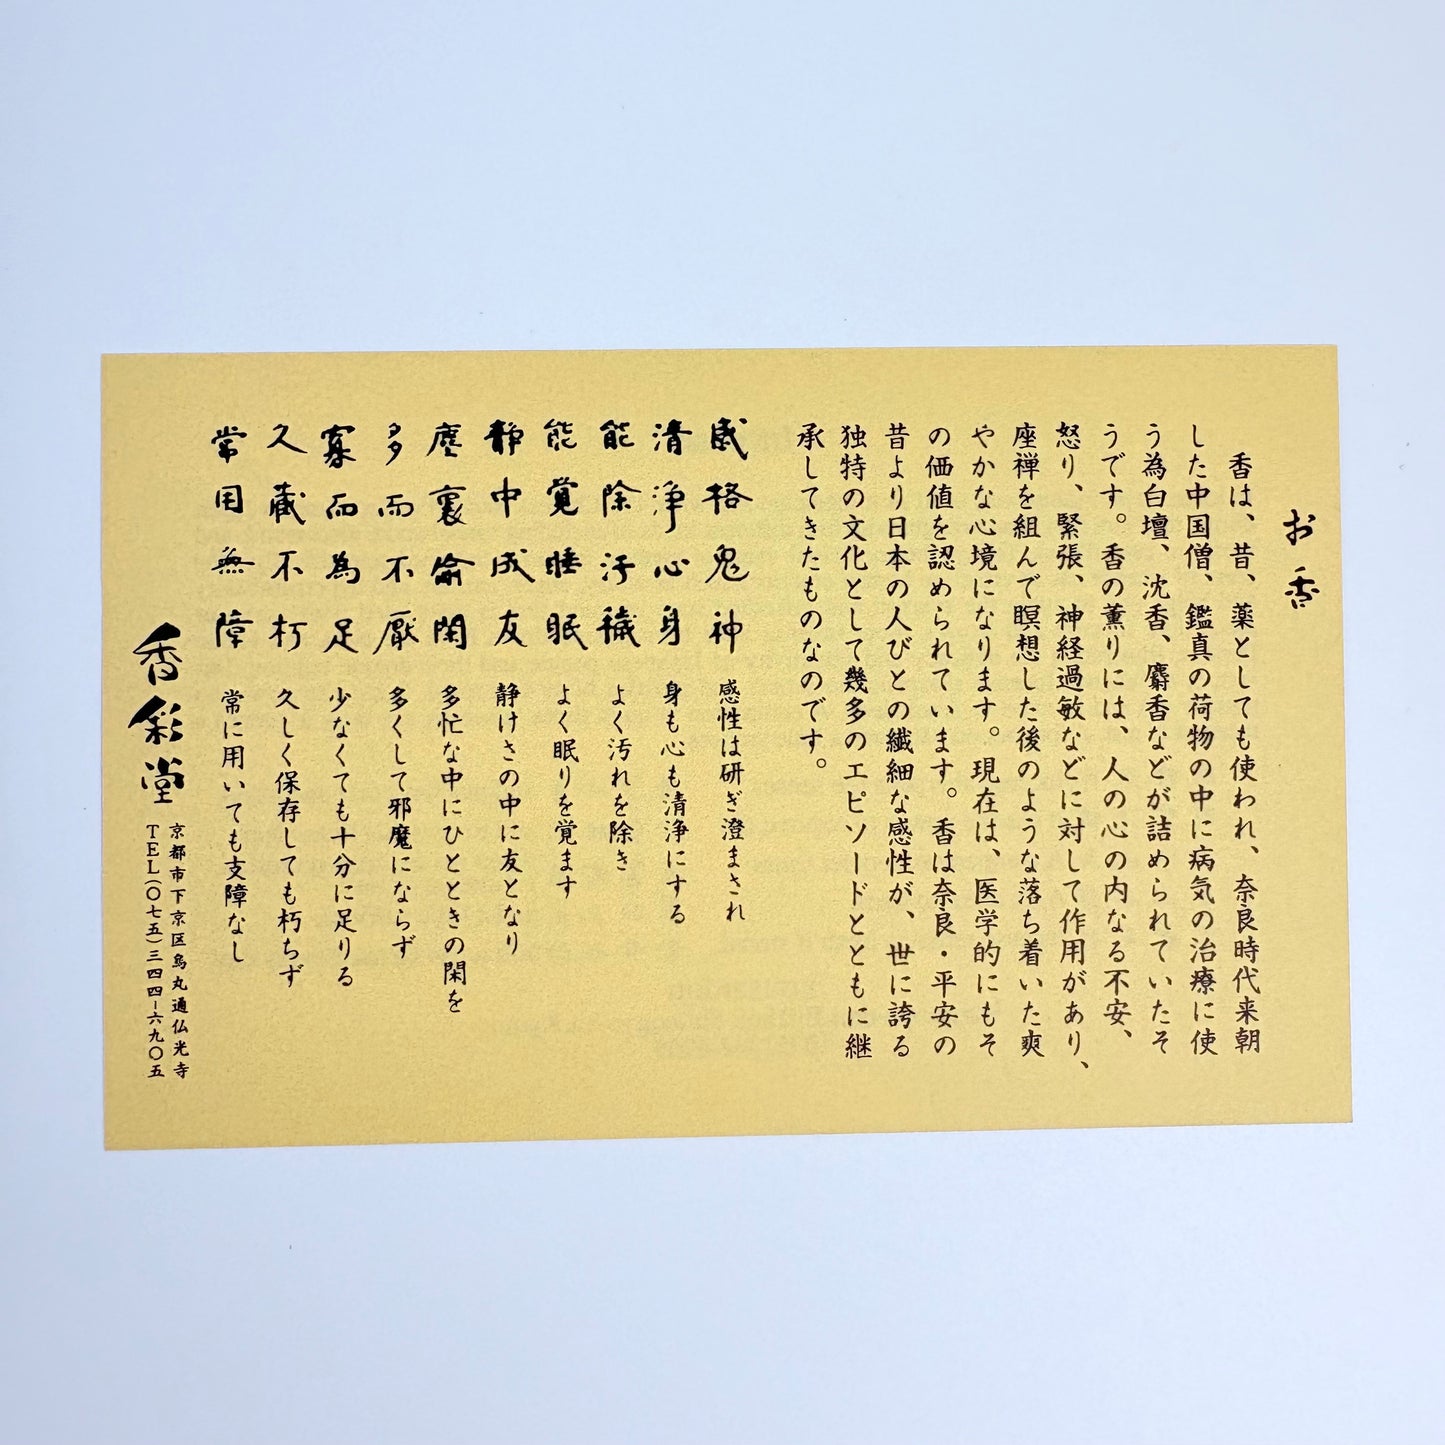 お香
香は、昔、薬としても使われ、奈良時代来朝
した中国僧、鑑真の荷物の中に病気の治療に使
う為白壇、沈香、麝香などが詰められていたそ
うです。香の薫りには、人の心の内なる不安、
怒り、緊張、神経過敏などに対して作用があり、
座禅を組んで瞑想した後のような落ち着いた爽
やかな心境になります。現在は、医学的にもそ
の価値を認められています。香は奈良・平安の
昔より日本の人びとの繊細な感性が、世に誇る
独特の文化として幾多のエピソードとともに継
承してきたものなのです。
感格鬼神 感性は研ぎ澄まされ
清浄心身 身も心も清浄にする
能除汚穢 よく汚れを除き
能覚睡眠 よく眠りを覚ます
静中成友 静けさの中に友となり
塵裏偸閑 多忙な中にひとときの閑を
多而不厭 多くして邪魔にならず
寡而為足 少なくても十分に足りる
久蔵不朽 久しく保存しても朽ちず
常用無障 常に用いても支障なし
香彩堂
京都市下京区烏丸通仏光寺
TEL(〇七五)三四四-六九〇五